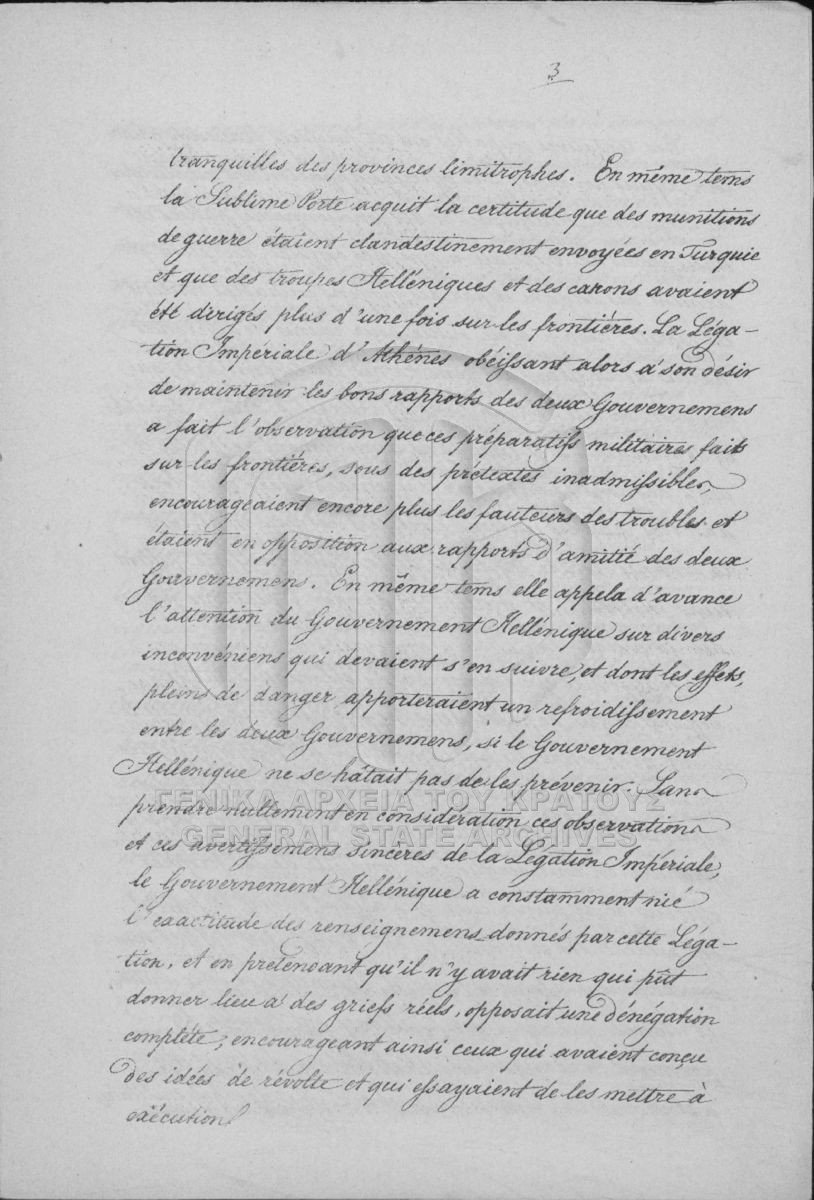 3
tranquilles des provinces limitrophes. En même tems
la Sublime Porte acquit la certitude que des munitions
de guerre étaient clandestinement envoyées en Turquie
et que des troupes Helléniques et des canons avaient
été dirigés plus d'une fois sur les frontières. La Léga-
tion Impériale d'Athènes obéissant alors à son désir
de maintenir les bons rapports des deux Gouvernemens
a fait l'observation que ces préparatifs militaires faits
sur les frontières, sous des prétextes inadmissibles,
encourageaient encore plus les fauteurs des troubles et
étaient en opposition aux rapports d'amitié des deux
Gouvernemens. En même tems elle appela d'avance
l'attention du Gouvernement Hellénique sur divers
inconvéniens qui devaient s'en suivre, et dont les effets,
pleins de danger apporteraient un refroidissement
entre les deux Gouvernemens, si le Gouvernement
Hellénique ne se hâtait pas de les prévenir. Sans
prendre nullement en considération ces observations
et ces avertissemens sincères de la Légation Impériale,
le Gouvernement Hellénique a constamment nié
l'exactitude des renseignemens donnés par cette Léga-
tion, et en prétendant qu'il n'y avait rien qui pût
donner lieu à des griefs réels, opposait une dénégation
complète; encourageant ainsi ceux qui avaient conçu
des idées de révolte et qui essayaient de les mettre à
exécution.
ΓΕΝΙΚΑ ΑΡΧΕΙΑ ΤΟΥ ΚΡΑΤΟΥΣ
GENERAL STATE ARCHIVES